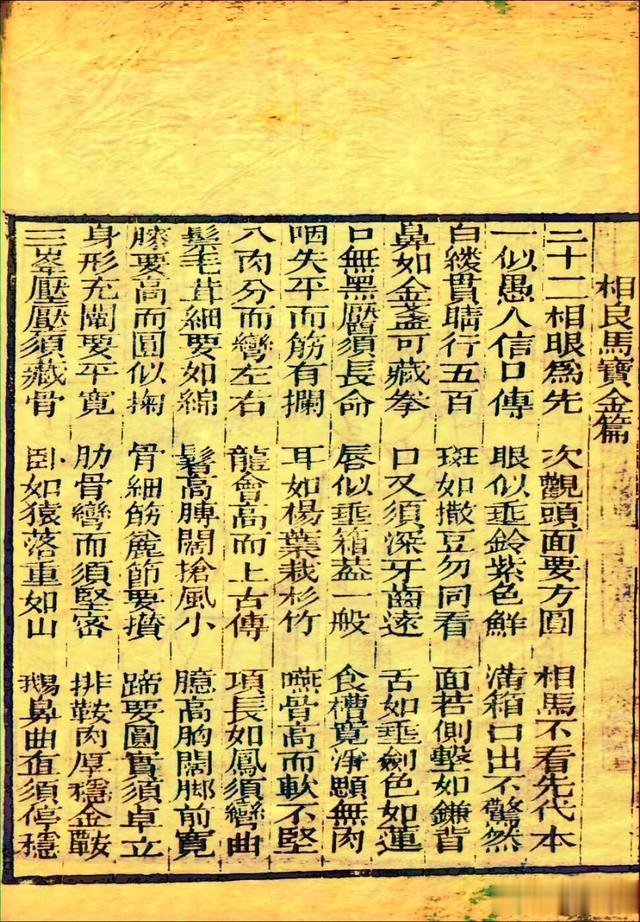 相良馬寶金篇
三十二相眼爲先 次觀頭面要方圓 相馬不看先代本
一似愚人信口傳 眼似垂鈴紫色鮮 滿箱凸出不驚然
白縷貫睛行五百 斑如撒豆勿同看 面若側擊如鎌背
鼻如金盞可藏拳 口叉須深牙齒遠 舌如垂劍色如蓮
口無黑靨須長命 唇似垂箱蓋一般 食槽寬淨顋無肉
咽失平而筋有攔 耳如楊葉裁杉竹 嚥骨高而軟不堅
八肉分而彎左右 龍會高而上古傳 項長如鳳須彎曲
鬃毛茸細要如綿 鬐高膊闊搶風小 臆高胸闊脚前寬
膝要高而圓似掬 骨細筋麄節要攢 蹄要圓實須卓立
身形充闊要平寬 肋骨彎而須堅密 排鞍肉厚穩金鞍
三峯壓壓須藏骨 卧如猿落重如山 鵝鼻曲直須停穩